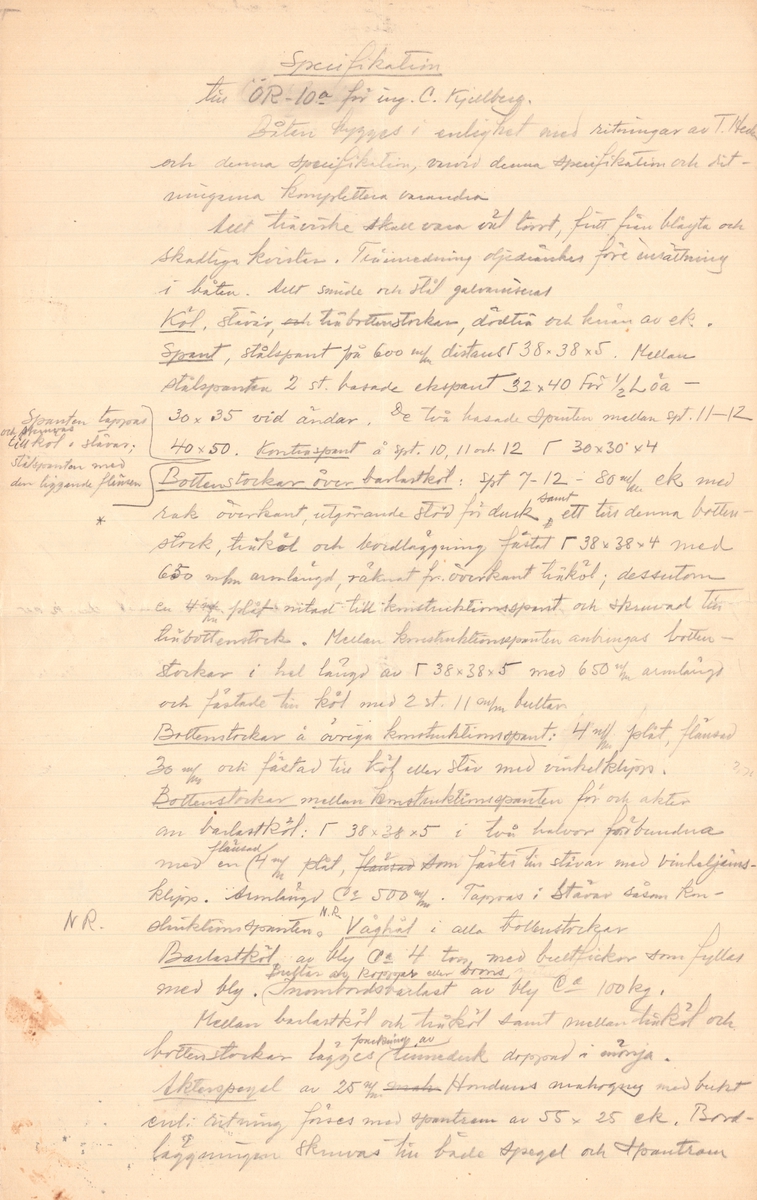 Specifikation
till ÖR-10a för ing. C. Kjellberg.
Båten bygges i enlighet med ritningar av T. Herl
och denna specifikation, varvid denna specifikation och rit-
ningarna komplettera varandra
Allt trävirke skall vara väl torrt, fritt från blåyta och
skadliga kvistar. Träinredning oljedränkes före insättning
i båten. Allt smide och stål galvaniseras
Köl, stävar, och träbottenstockar, dödträ och knän av ek.
Spant, stålspant på 600 m/m distans Γ 38×38×5. Mellan
stålspanten 2 st. basade ekspant 32×40 för 1/2 Löa –
30×35 vid ändar. De två basade spanten mellan spt. 11–12
40×50. Kontraspant å spt. 10, 11 och 12 Γ 30×30×4
Spanten tappas
och skruvas
till köl o stävar;
stålspanten med
den liggande flänsen
*
Bottenstockar över barlastköl: spt 7-12 - 80 m/m ek med
rak överkant, utgörande stöd för durk, samt ett till denna botten-
stock, träköl och bordläggning fästat Γ 38×38×4 med
650 m/m armlängd, räknat fr. överkant träköl; dessutom
en 4 m/m plåt nitad till konstruktionsspant och skruvad till
träbottenstock. Mellan konstruktionsspanten anbringas botten-
stockar i hel längd av Γ 38×38×5 med 650 m/m armlängd
och fästade till köl med 2 st. 11 m/m bultar.
Bottenstockar å övriga konstruktionsspant: 4 m/m plåt, flänsad
30 m/m och fästad till köl eller stäv med vinkelklipp.
Bottenstockar mellan konstruktionsspanten för och akter
om barlastköl: Γ 38×38×5 i två halvor förbundna
med en flänsad 4 m/m plåt, flänsad som fästes till stävar med vinkeljärns-
klipp. Armlängd Ca 500 m/m. Tappas i stävar såsom kon-
struktionsspanten. N.R. Våghål i alla bottenstockar
N.R.
Barlastköl av bly Ca 4 ton, med bultfickor som fyllas
med bly. Bultar av koppar eller brons. Inombordsbarlast av bly Ca 100 kg.
Mellan barlastköl och träköl samt mellan träköl och
bottenstockar lägges packning av linneduk doppad i mönja.
Akterspegel av 25 m/m Honduras mahogny med bukt
enl. ritning förses med spantram av 55 × 25 ek. Bord-
läggningen skruvas till både spegel och spantram